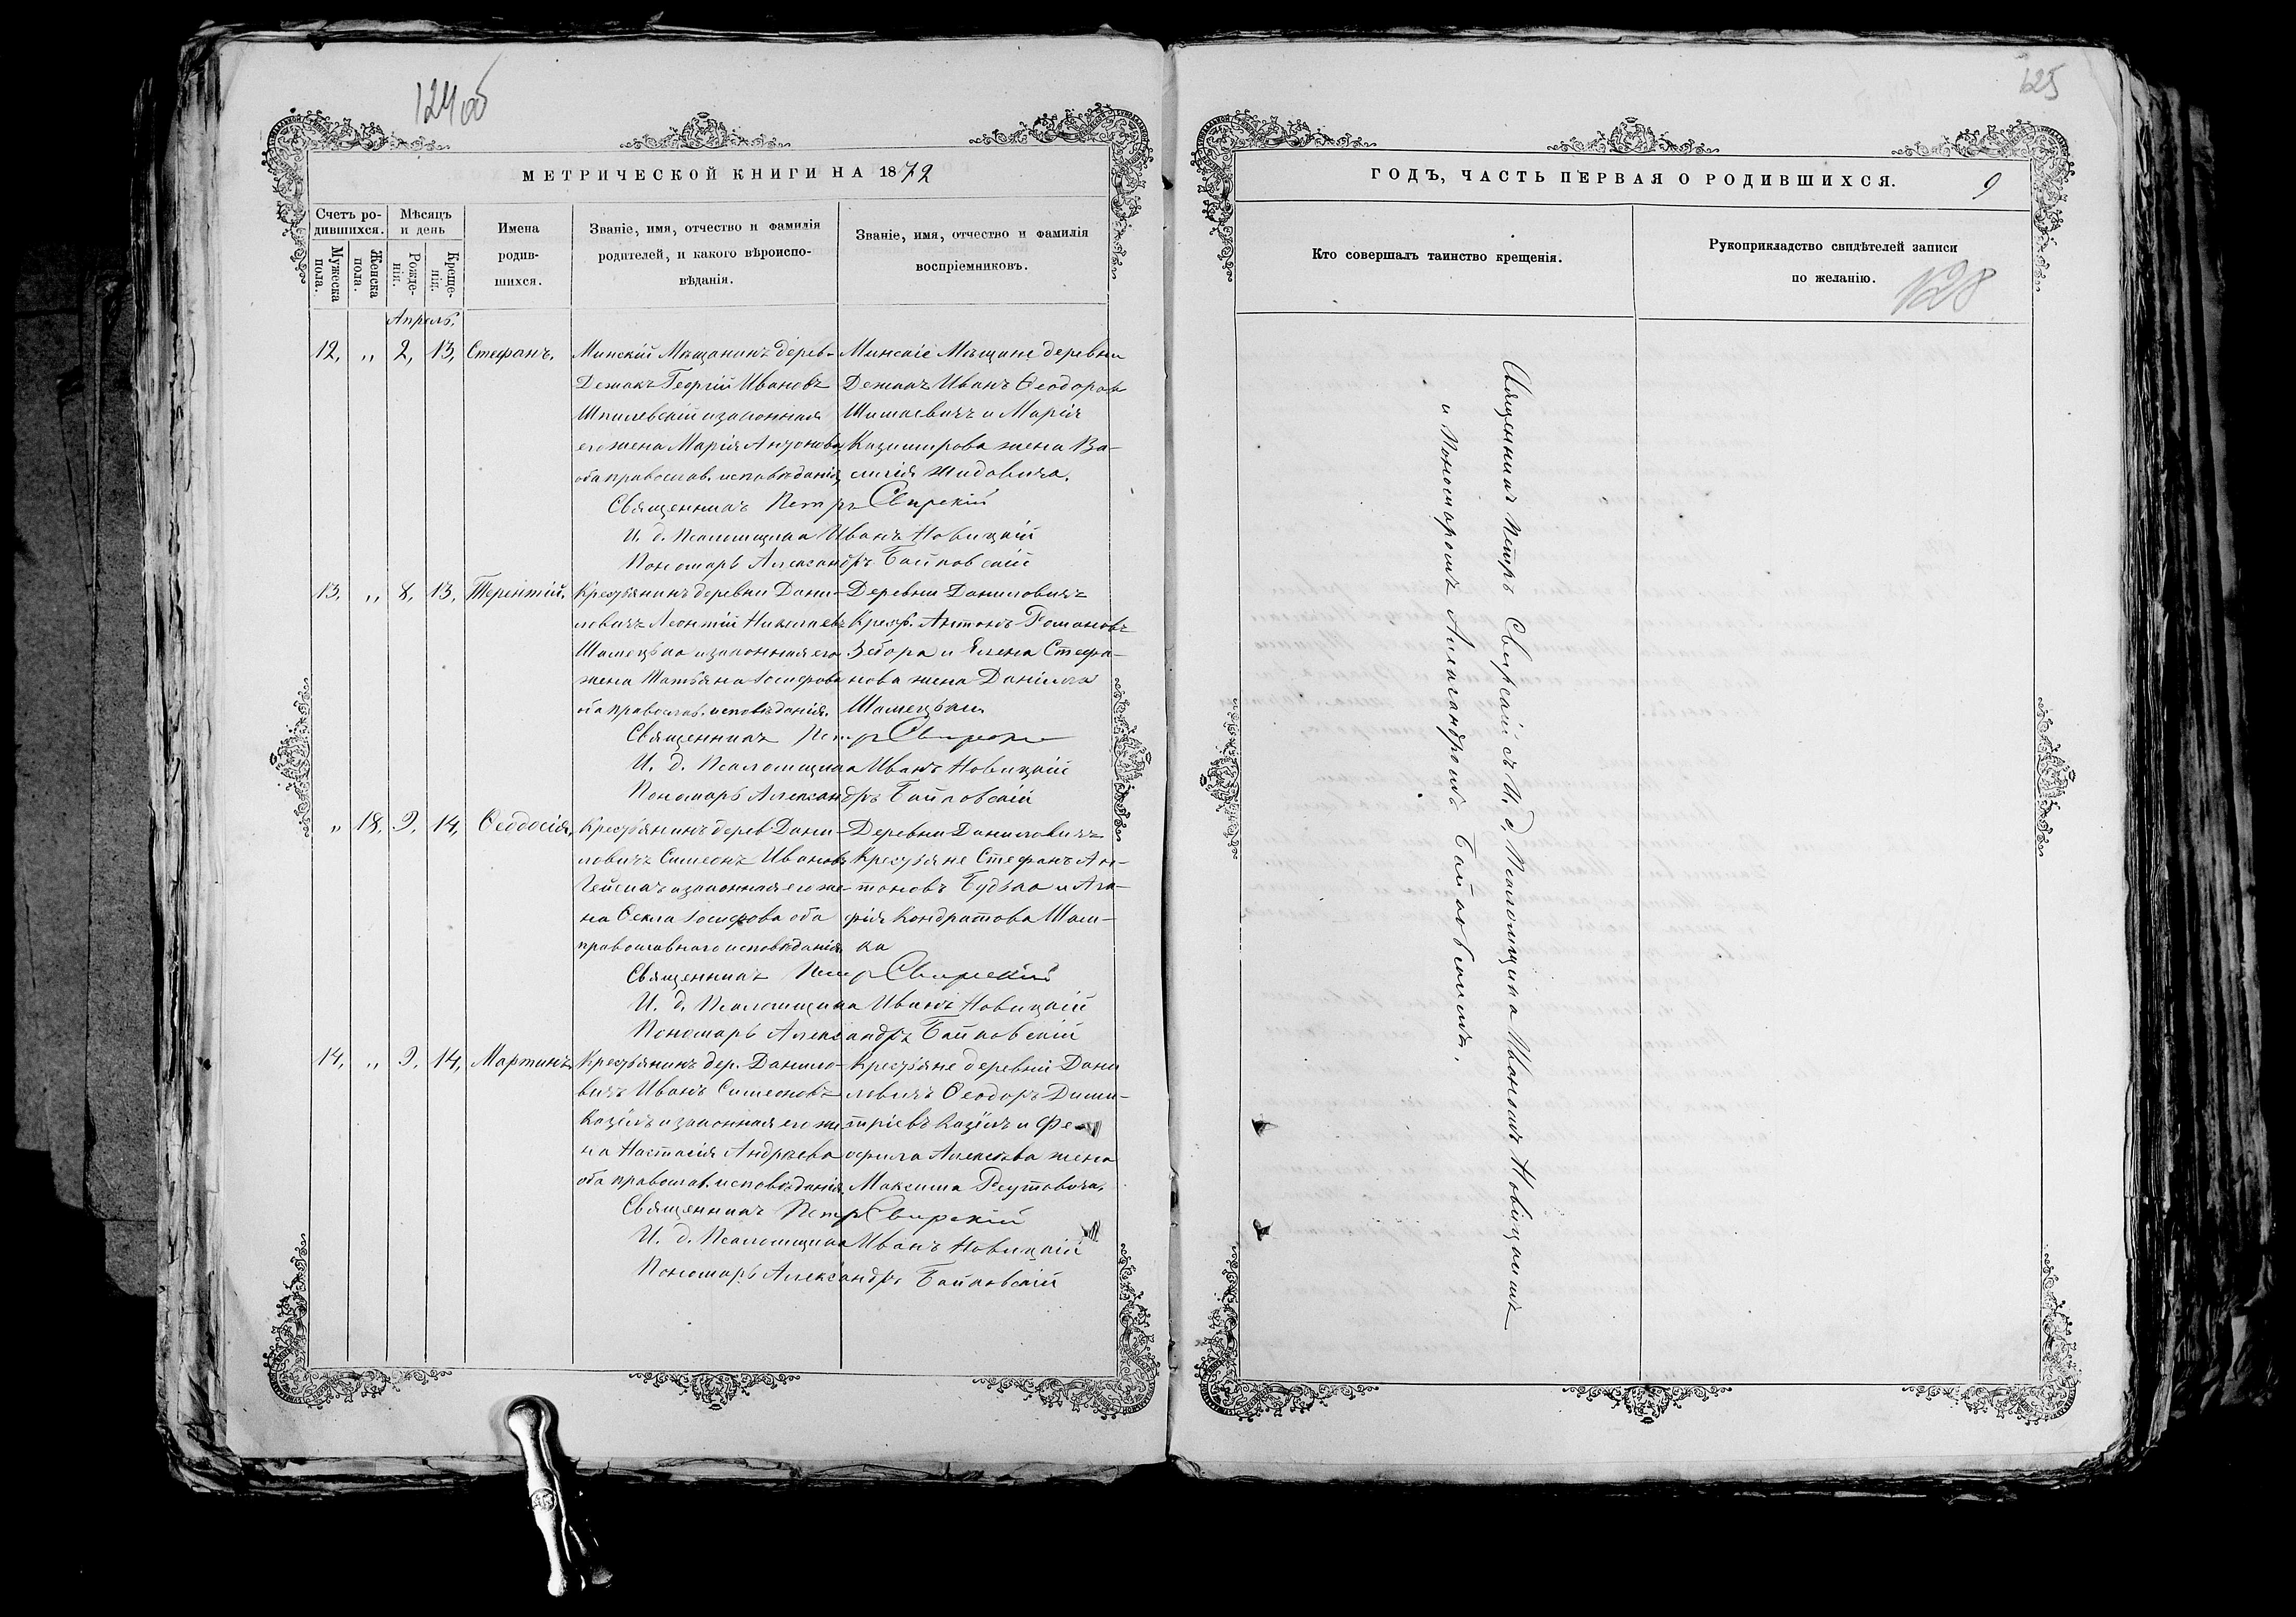 124об
МЕТРИЧЕСКОЙ КНИГИ НА 1872
Счетъ ро-
дившихся.
Мужеска
пола.
Женска
пола.
Мѣсяцъ
и день
Рожде-
нія.
Креще-
нія.
Имена
родив-
шихся.
Званіе, имя, отчество и фамилія
родителей, и какого вѣроиспо-
вѣданія.
Званіе, имя, отчество и фамилія
воспріемниковъ.
Апрель.
12, „ 2, 13, Стефанъ.
Минскій Мѣщанинъ дерев-
Георгій Ивановъ
Шпилевскій и законная
его жена Марія Антонова
оба православ. исповѣданія,
Минскіе Мѣщане деревни
Иванъ Ѳеодоров
и Марія
Казимирова жена Ва-
силія Шидовича.
Священникъ Петръ Свирскій
И. д. Псаломщика Иванъ Новицкій
Пономарь Александръ Байковскій
13, „ 8, 13, Терентій.
Крестьянинъ деревни Дани-
ловичъ Леонтій Николаевъ
и законная его
жена Татьяна Іосифова
оба православ. исповѣданія.
Деревни Даниловичъ
Крест. Антонъ Романовъ
и Елена Стефа-
нова жена Даніила
Священникъ Петръ Свирскій
И. д. Псаломщика Иванъ Новицкій
Пономарь Александръ Байковскій
„ 18, 9, 14, Ѳеодосія,
Крестьянинъ дерев Дани-
ловичъ Симеонъ Ивановъ
и законная его же-
на Ѳекла Іосифова оба
православнаго исповѣданія
Деревни Даниловичъ
Крестьяне Стефанъ Ан-
тоновъ Будько и Ага-
фія Кондратова Шам-
ка
Священникъ Петръ Свирскій
И. д. Псаломщика Иванъ Новицкій
Пономарь Александръ Байковскій
14, „ 9, 14, Мартинъ
Крестьянинъ дер. Данило-
вичъ Иванъ Симеоновъ
Казёлъ и законная его же
на Настасія Андреева
оба православ. исповѣданія
Крестьяне деревни Дани
ловичъ Ѳеодоръ Дими-
тріевъ Казёлъ и Фе-
офила Алексѣева жена
Максима Реутовича,
Священникъ Петръ Свирскій
И. д. Псаломщика Иванъ Новицкій
Пономарь Александръ Байковскій
125
ГОДЪ, ЧАСТЬ ПЕРВАЯ О РОДИВШИХСЯ.
9
Кто совершалъ таинство крещенія.
Рукоприкладство свидѣтелей записи
по желанію.
128
Священникъ Петръ Свирскій съ И. д. Псаломщика Иваномъ Новицкимъ
и Пономаромъ Александромъ Байковскимъ.